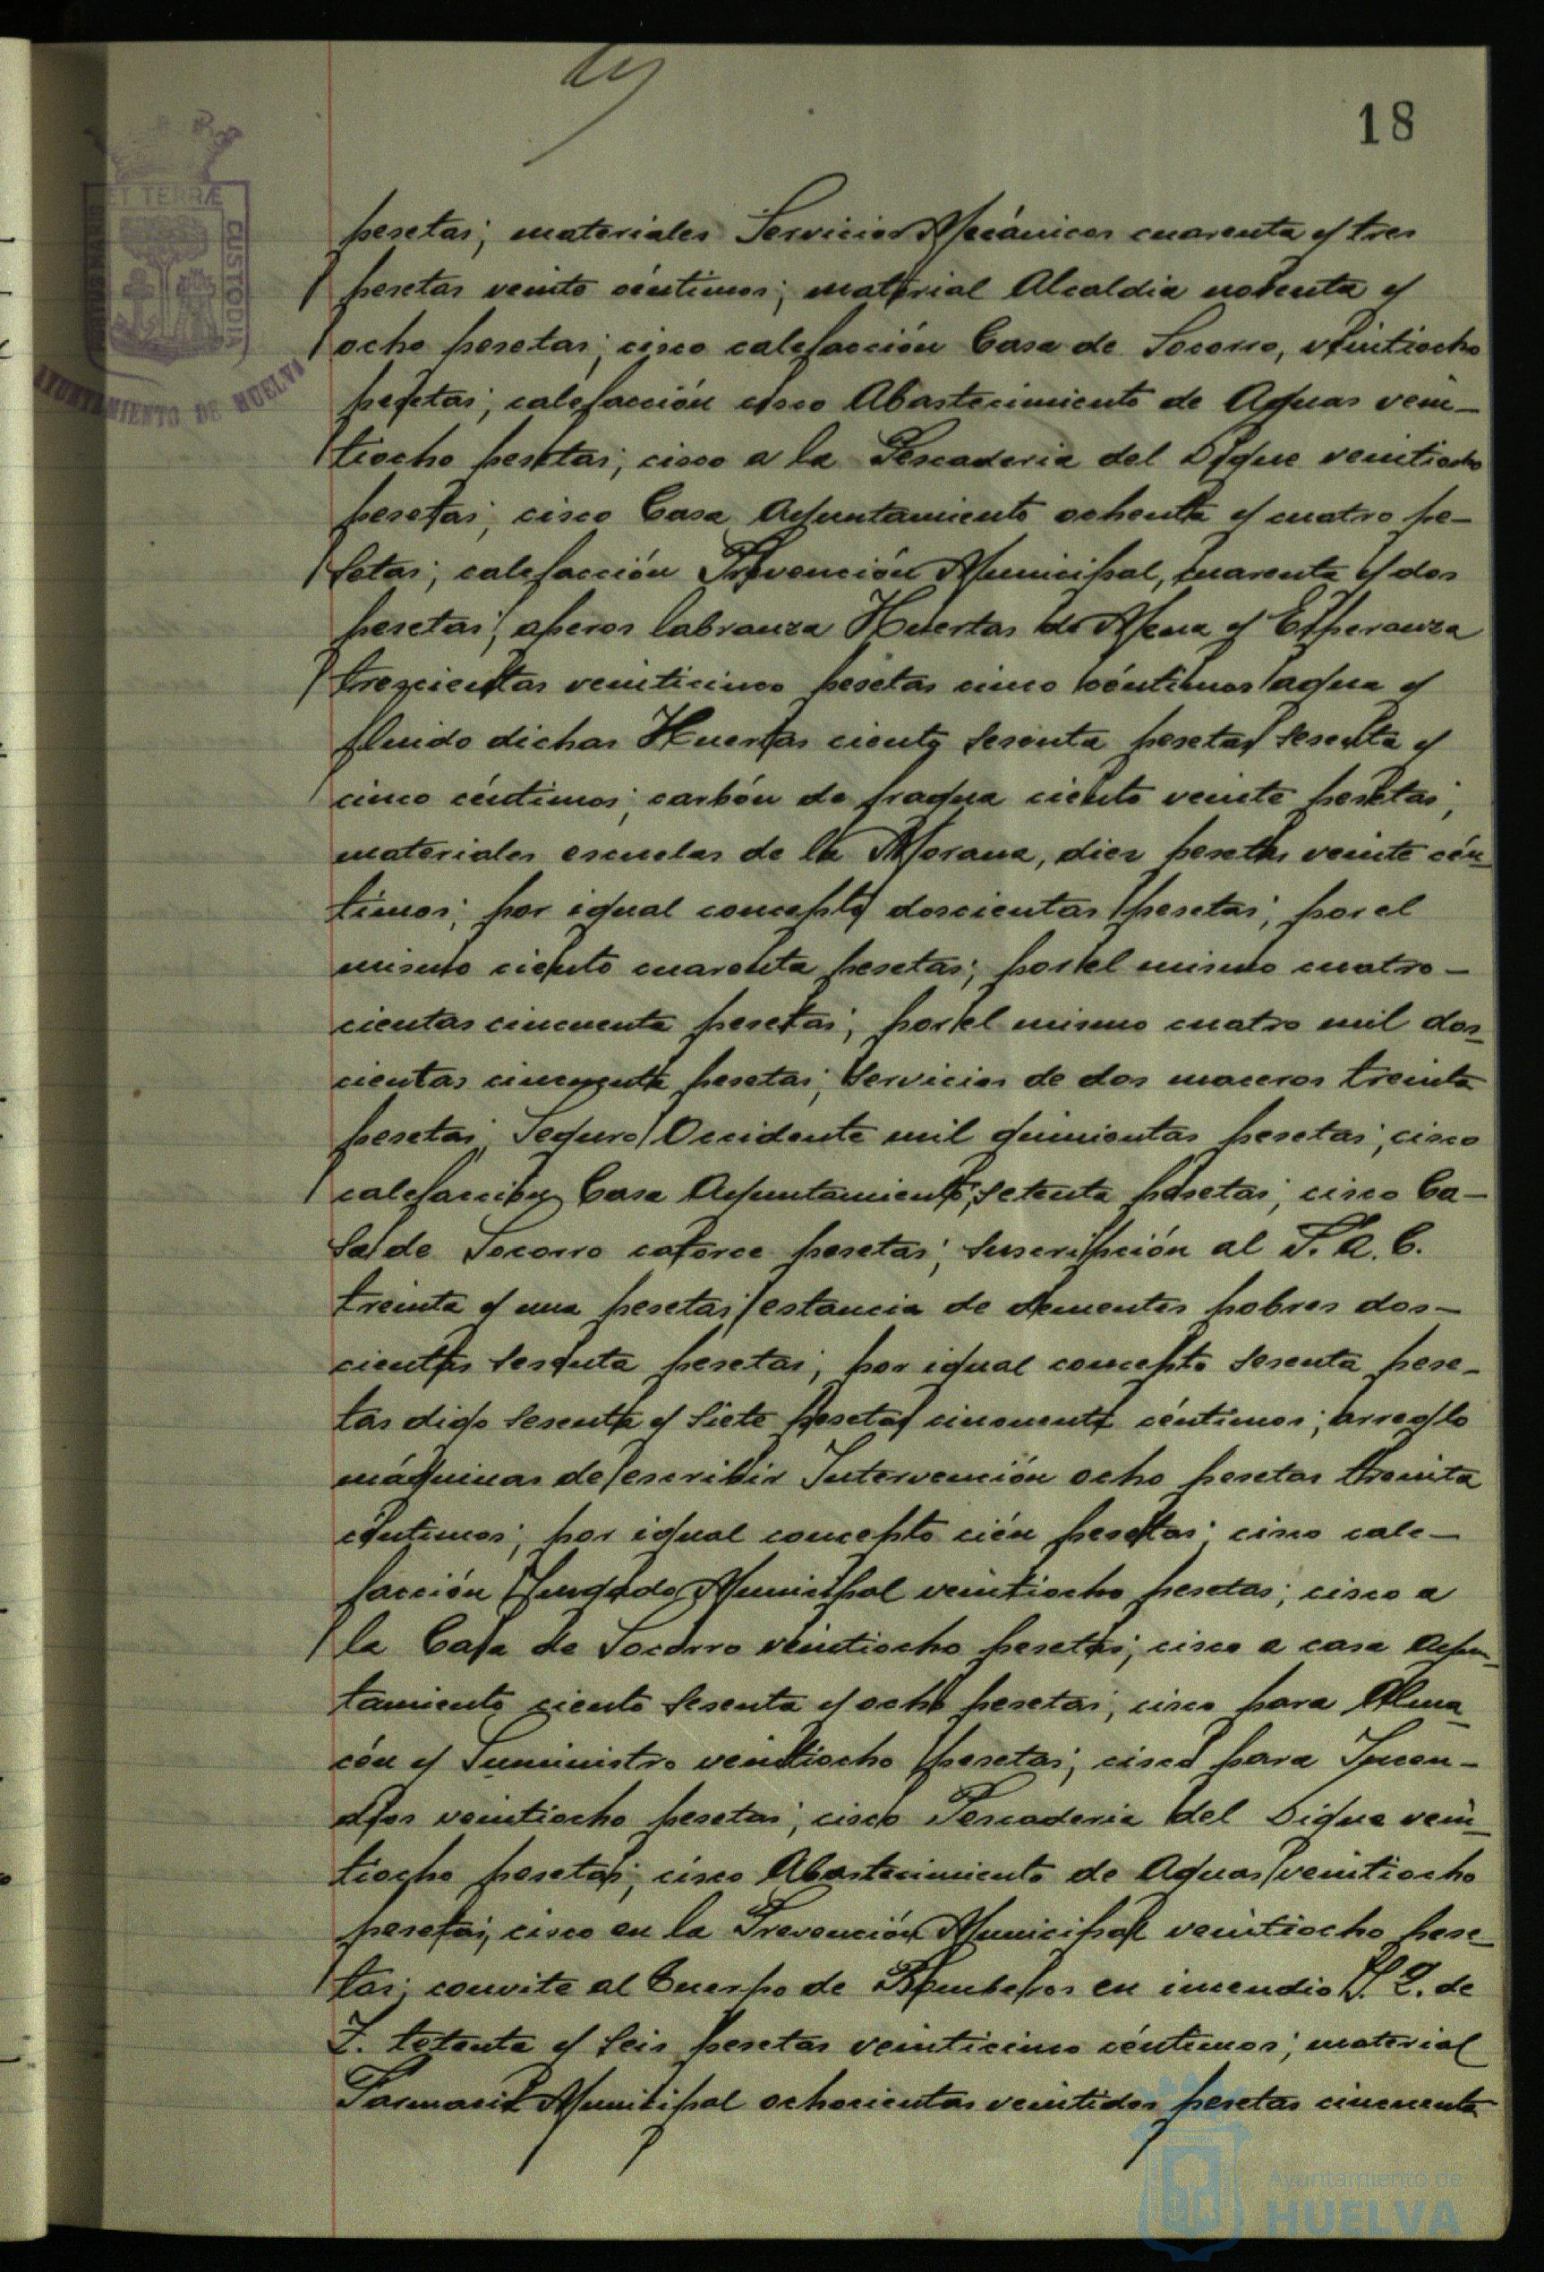 18
ET TERRÆ
CUSTODIA
AYUNTAMIENTO DE HUELVA
pesetas; materiales Servicios Mecánicos cuarenta y tres
pesetas veinte céntimos; material Alcaldia noventa y
ocho pesetas; cisco calefacción Casa de Socorro, veintiocho
pesetas; calefacción cisco Abastecimiento de Aguas vein-
tiocho pesetas; cisco a la Pescaderia del Dique veintiocho
pesetas; cisco Casa Ayuntamiento ochenta y cuatro pe-
setas; calefacción Prevención Municipal, cuarenta y dos
pesetas; aperos labranza Huertas de Mena y Esperanza
trescientas veinticinco pesetas cinco céntimos; agua y
fluido dichas Huertas ciento sesenta pesetas sesenta y
cinco céntimos; carbón de fragua ciento veinte pesetas;
materiales escuelas de la Morana, diez pesetas veinte cén-
timos; por igual concepto doscientas pesetas; por el
mismo ciento cuarenta pesetas; por el mismo cuatro-
cientas cincuenta pesetas; por el mismo cuatro mil dos-
cientas cincuenta pesetas; Servicios de dos maceros treinta
pesetas; Seguro Occidente mil quinientas pesetas; cisco
calefacción Casa Ayuntamiento, setenta pesetas; cisco Ca-
sa de Socorro catorce pesetas; suscripción al P. A. C.
treinta y una pesetas; estancia de dementes pobres dos-
cientas sesenta pesetas; por igual concepto sesenta pese-
tas digo sesenta y siete pesetas cincuenta céntimos; arreglo
máquinas de escribir Intervención ocho pesetas treinta
céntimos; por igual concepto cién pesetas; cisco cale-
facción Juzgado Municipal veintiocho pesetas; cisco a
la Casa de Socorro veintiocho pesetas; cisco a casa Ayun-
tamiento ciento sesenta y ocho pesetas; cisco para Alma-
cén y Suministro veintiocho pesetas; cisco para Incen-
dios veintiocho pesetas; cisco Pescaderia del Dique vein-
tiocho pesetas; cisco Abastecimiento de Aguas veintiocho
pesetas; cisco en la Prevención Municipal veintiocho pese-
tas; convite al Cuerpo de Bomberos en incendio de
Z. setenta y seis pesetas veinticinco céntimos; material
Farmacia Municipal ochocientas veintidos pesetas cincuenta
Ayuntamiento de
HUELVA